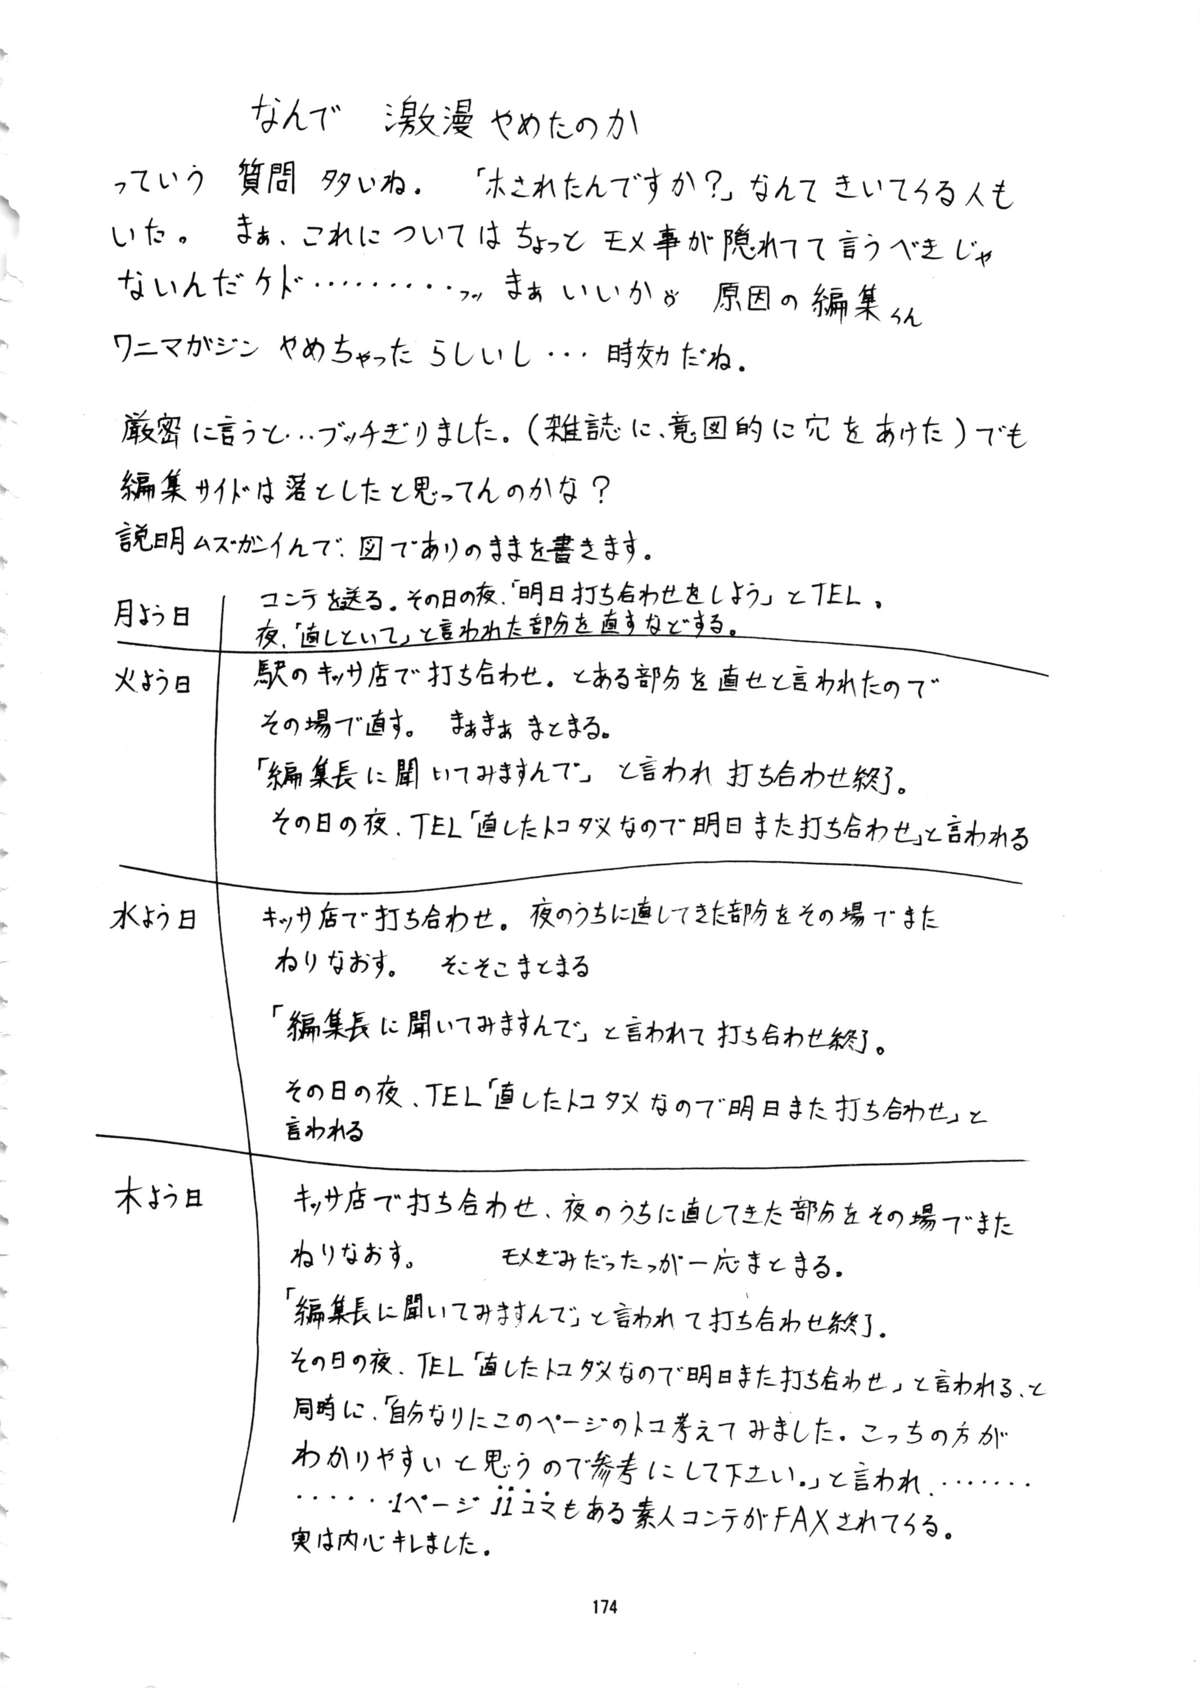 なんで 激漫 やめたのか
っていう 質問 多いね。 「ホされたんですか?」なんて きいてくる人も
いた。 まぁ、これについては ちょっと モメ事が隠れてて言うべきじゃ
ないんだケド・・・・・・・・・フッ まぁ いいか 原因の編集くん
ワニマガジン やめちゃった らしいし・・・時効だね。
厳密に言うと・・・ブッチぎりました。(雑誌に、意図的に穴をあけた)でも
編集サイドは落としたと思ってんのかな?
説明ムズカシイんで、図でありのままを書きます。
月よう日
コンテを送る。その日の夜、「明日打ち合わせをしよう」とTEL。
夜、「直しといて」と言われた部分を直すなどする。
火よう日
駅のキッサ店で打ち合わせ。とある部分を直せと言われたので
その場で直す。 まぁまぁ まとまる。
「編集長に聞いてみますんで」 と言われ 打ち合わせ終了。
その日の夜、TEL「直したトコダメなので明日また打ち合わせ」と言われる
水よう日
キッサ店で打ち合わせ。夜のうちに直してきた部分をその場でまた
ねりなおす。 そこそこまとまる
「編集長に聞いてみますんで」と言われて打ち合わせ終了。
その日の夜、TEL「直したトコダメなので明日また打ち合わせ」と
言われる
木よう日
キッサ店で打ち合わせ、夜のうちに直してきた部分をその場でまた
ねりなおす。 モメぎみだったっが一応まとまる。
「編集長に聞いてみますんで」と言われて打ち合わせ終了。
その日の夜、TEL「直したトコダメなので明日また打ち合わせ」と言われる、と
同時に、「自分なりにこのページのトコ考えてみました。こっちの方が
わかりやすいと思うので参考にして下さい。」と言われ、・・・・・・・
・・・・・・1ページ11コマもある素人コンテがFAXされてくる。
実は内心キレました。
174